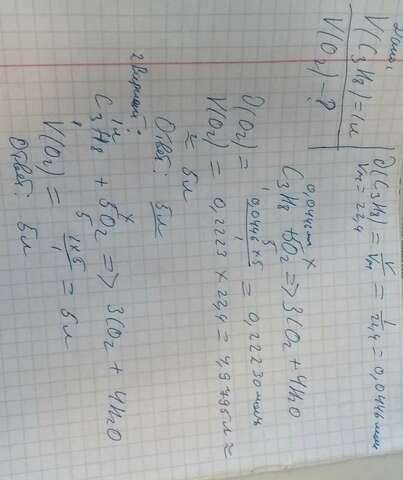 Дано:
V(C3H8) = 1л
V(O2) - ?
ν(C3H8) = V/Vm = 1/22,4 = 0,0446моль
Vm = 22,4
0,0446моль x
C3H8 + 5O2 => 3CO2 + 4H2O
1 5
ν(O2) = 0,0446 × 5/1 = 0,2223моль
V(O2) = 0,2223 × 22,4 = 4,9795л ≈
≈ 5л
Ответ: 5л
2 вариант:
1л x
C3H8 + 5O2 => 3CO2 + 4H2O
1 5
V(O2) = 1 × 5/1 = 5л
Ответ: 5л